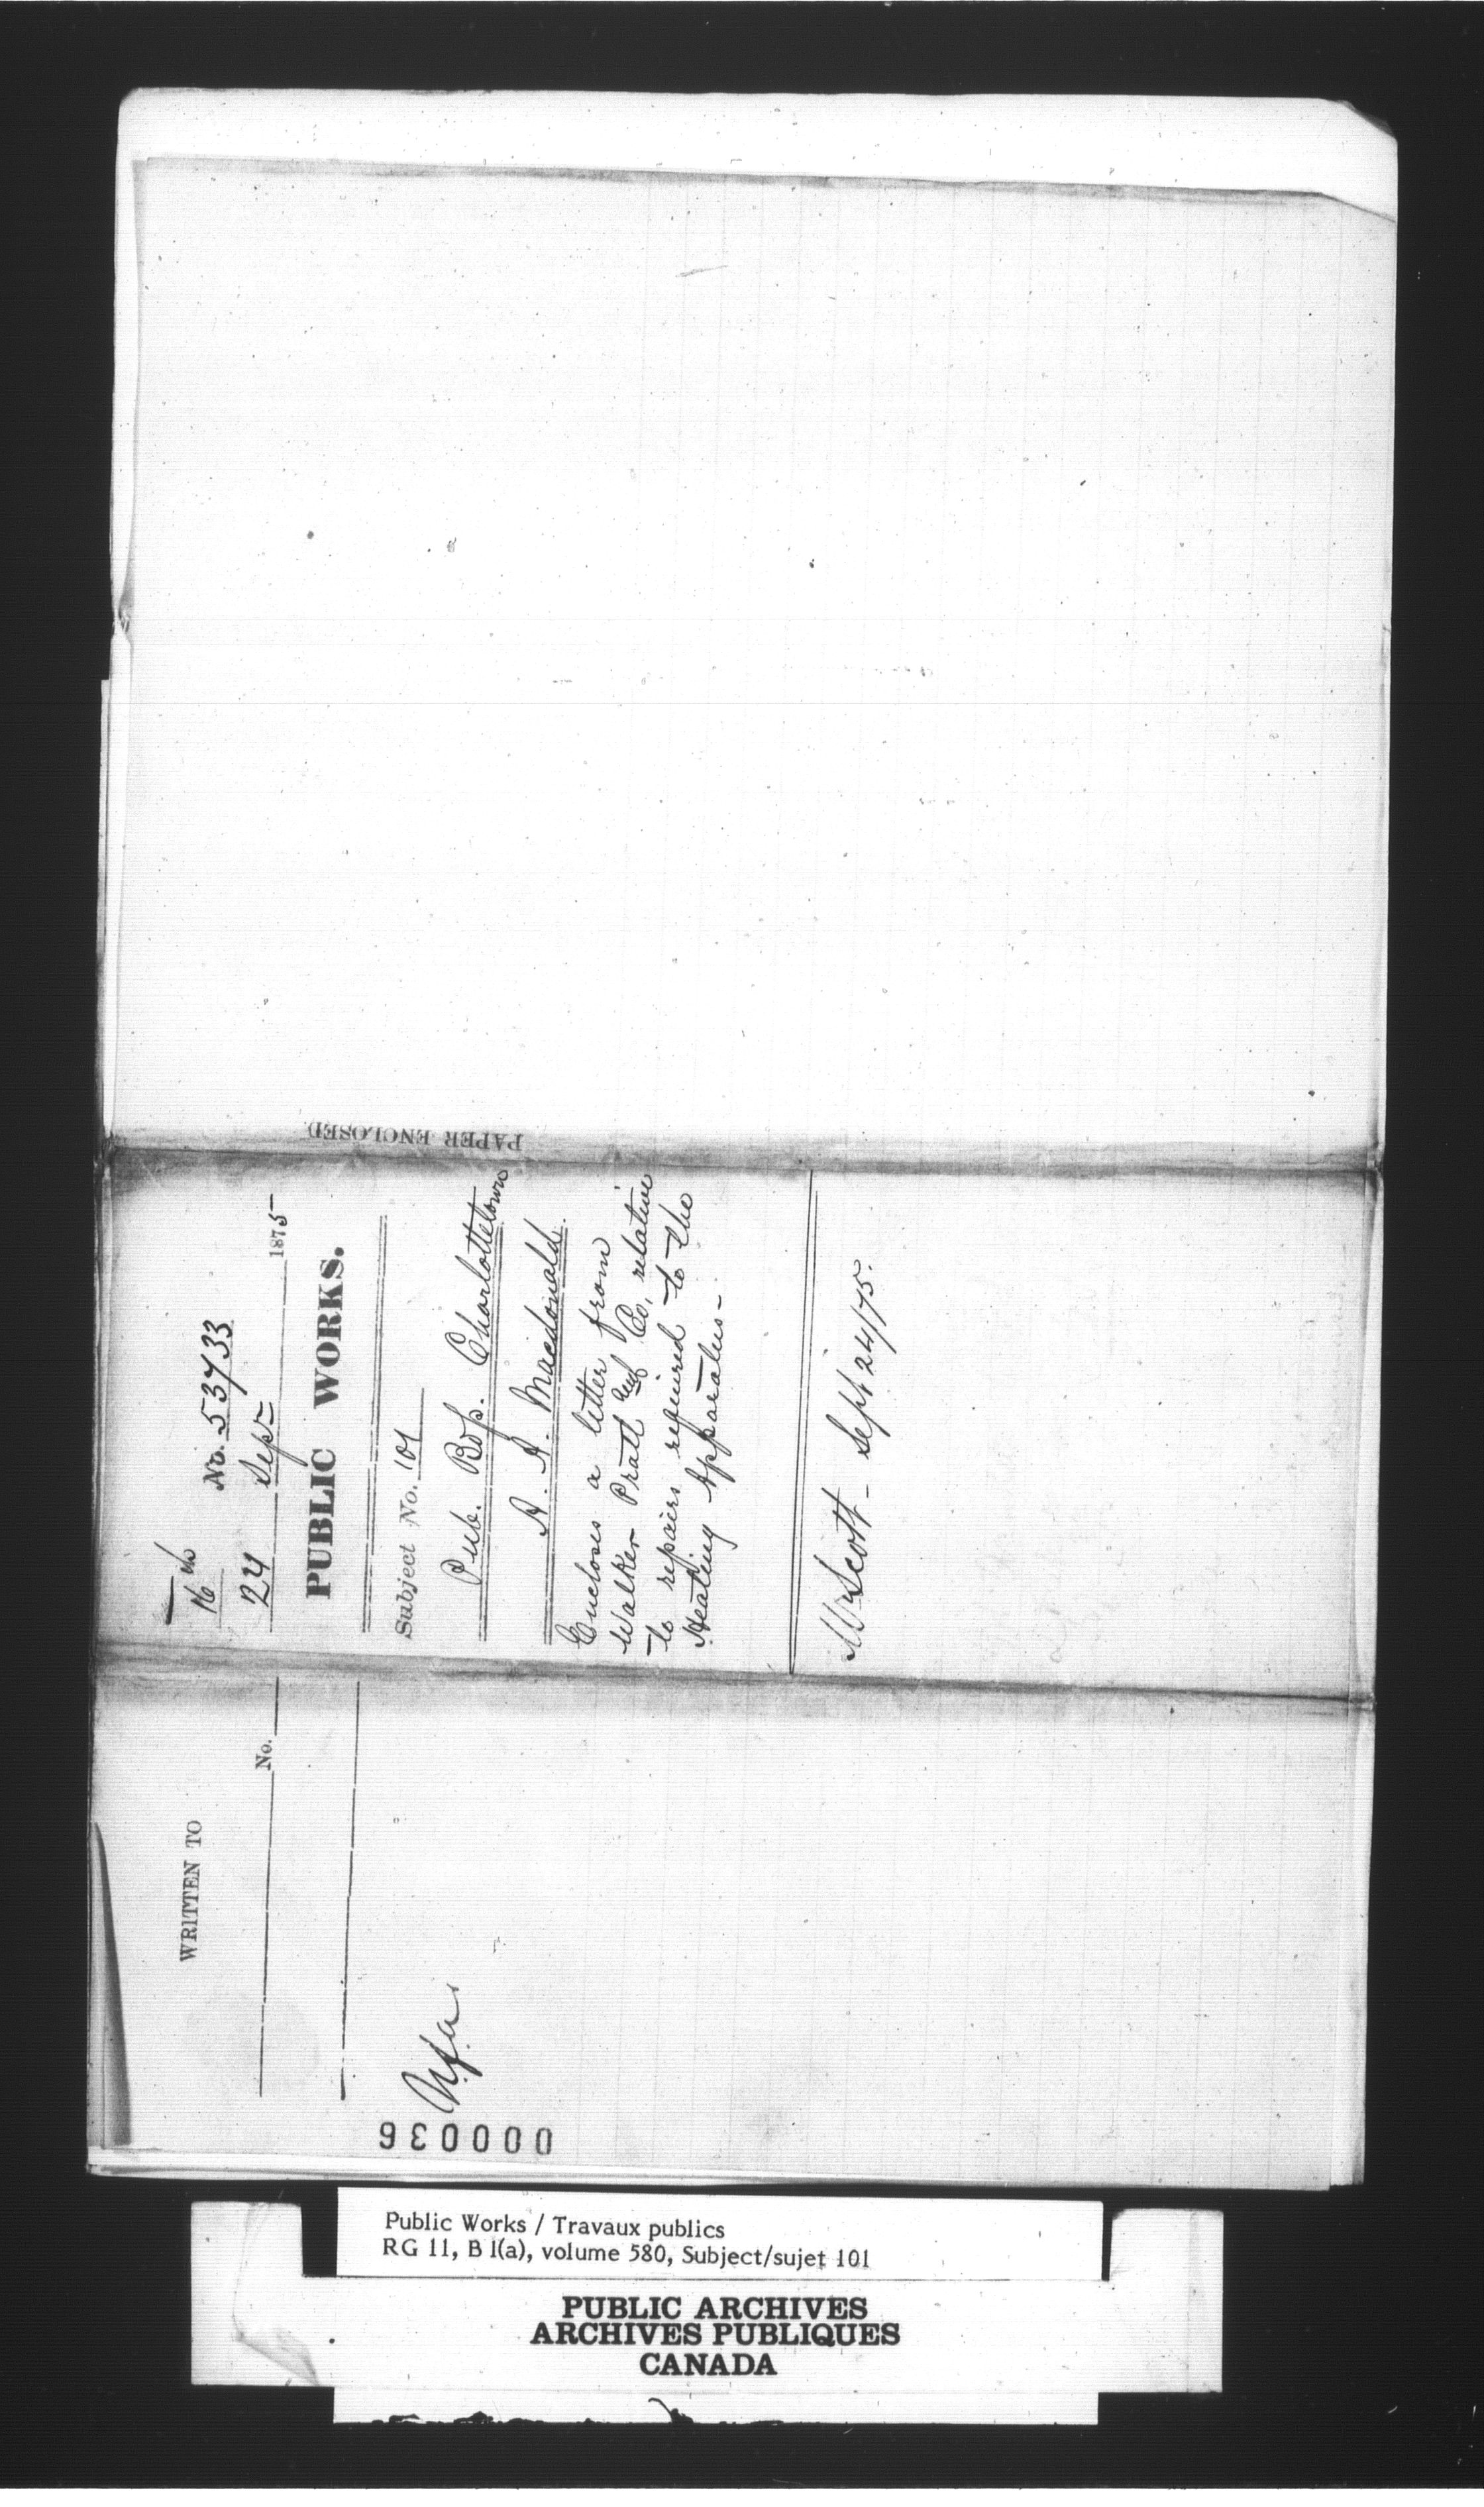 16th
No. 53733
24 Sepr 1875
PUBLIC WORKS.
Subject No. 101
Pub. Bdgs. Charlottetown
A. A. Macdonald.
Encloses a letter from
Walker Pratt Mnf Co, relative
to repairs required to the
Heating Apparatus-
Mr Scott - Sept 24/75.
PAPER ENCLOSED
WRITTEN TO
No.
000036
Public Works / Travaux publics
RG 11, B 1(a), volume 580, Subject/sujet 101
PUBLIC ARCHIVES
ARCHIVES PUBLIQUES
CANADA